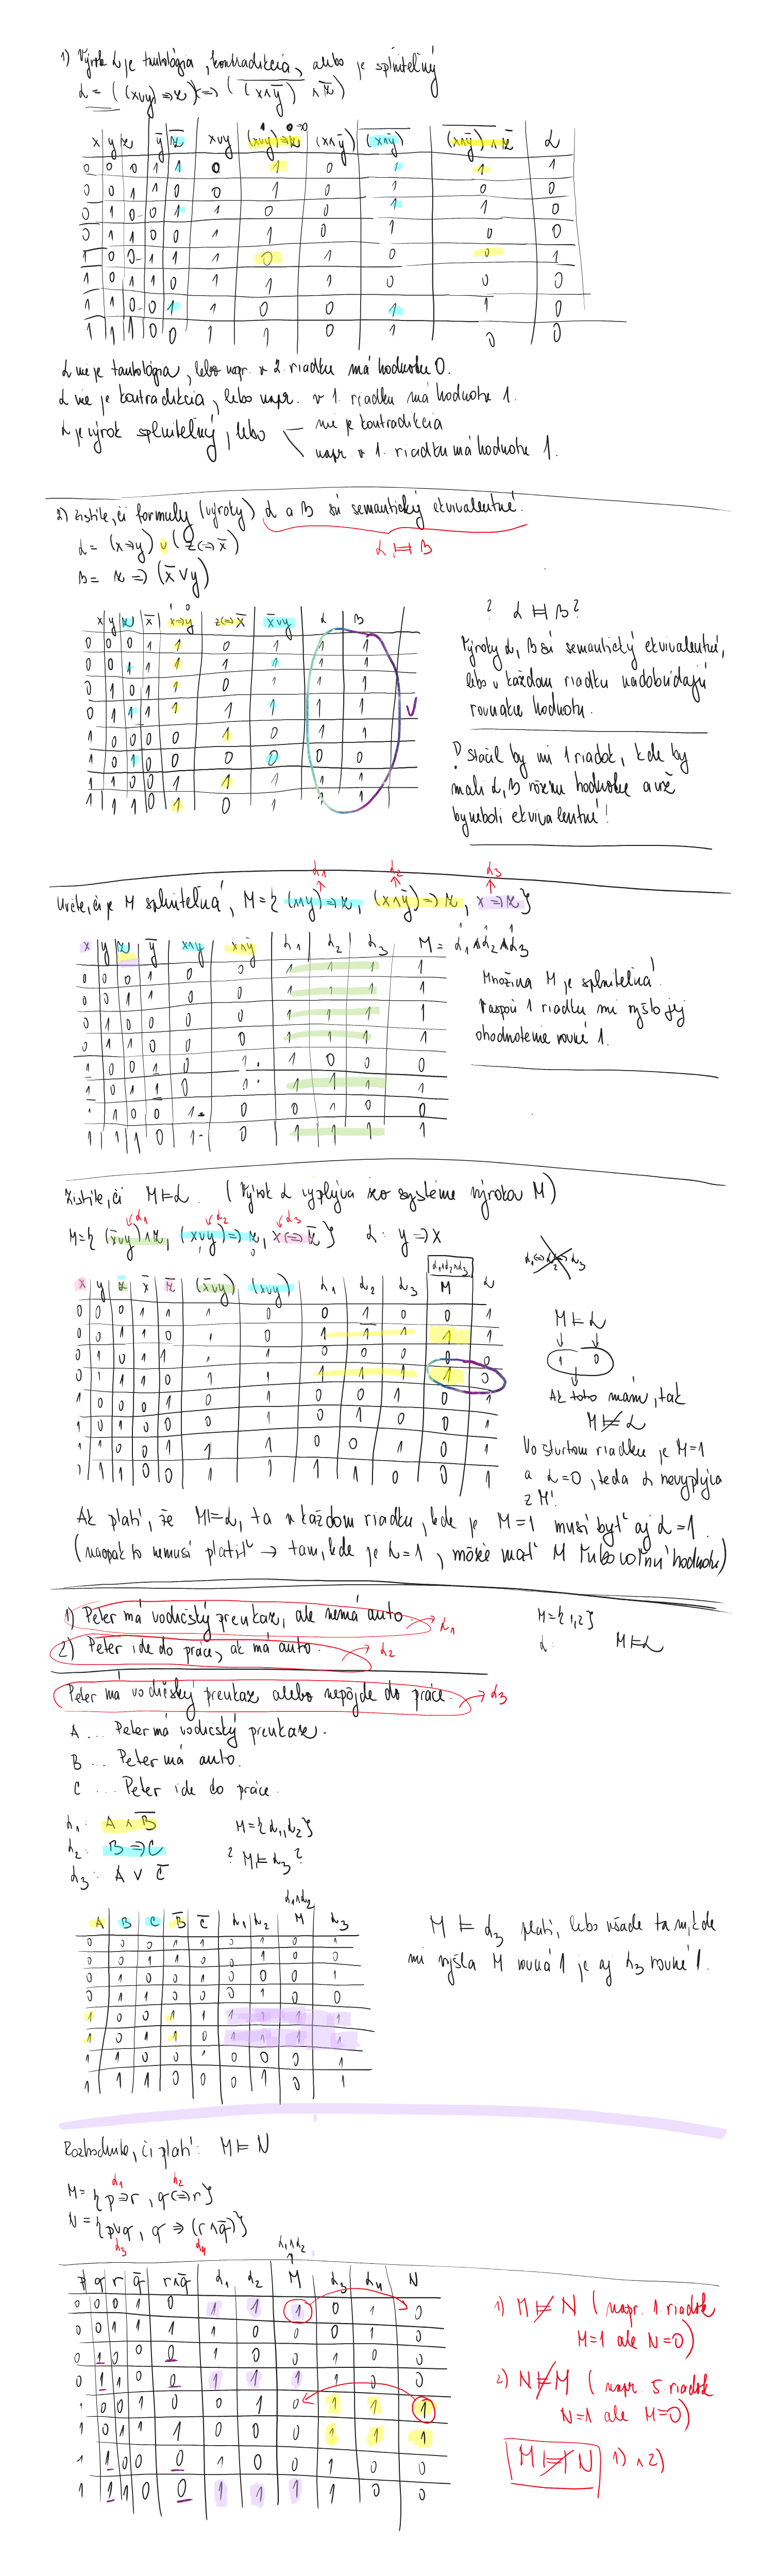 1) Výrok α je tautológia, kontradikcia, alebo je splniteľný
α = ((x∨y)⇒z)⇔(\overline{(x∧ȳ)} ∧ z̄)
1 0⇒0
x y z ȳ z̄ x∨y (x∨y)⇒z (x∧ȳ) \overline{(x∧ȳ)} \overline{(x∧ȳ)}∧z̄ α
0 0 0 1 1 0 1 0 1 1 1
0 0 1 1 0 0 1 0 1 0 0
0 1 0 0 1 1 0 0 1 1 0
0 1 1 0 0 1 1 0 1 0 0
1 0 0 1 1 1 0 1 0 0 1
1 0 1 1 0 1 1 1 0 0 0
1 1 0 0 1 1 0 0 1 1 0
1 1 1 0 0 1 1 0 1 0 0
α nie je tautológia, lebo napr. v 2. riadku má hodnotu 0.
α nie je kontradikcia, lebo napr. v 1. riadku má hodnotu 1.
α je výrok splniteľný, lebo nie je kontradikcia
napr. v 1. riadku má hodnotu 1.
2) Zistite, či formuly (výroky) α a B sú semanticky ekvivalentné.
α = (x⇒y) ∨ (z⇔x̄)
α ⊨ B
B = z ⇒ (x̄∨y)
x y z x̄ x⇒y z⇔x̄ x̄∨y α B
0 0 0 1 1 0 1 1 1
0 0 1 1 1 1 1 1 1
0 1 0 1 1 0 1 1 1
0 1 1 1 1 1 1 1 1
1 0 0 0 0 1 0 1 1
1 0 1 0 0 0 0 0 0
1 1 0 0 1 1 1 1 1
1 1 1 0 1 0 1 1 1
? α ⊨ B ?
Výroky α, B sú semanticky ekvivalentné,
lebo v každom riadku nadobúdajú
rovnaké hodnoty.
! stačil by mi 1 riadok, kde by
mali α, B rôznu hodnotu a už
by neboli ekvivalentné!
α1 α2 α3
Určte, či je M splniteľná, M = { (x∧y)⇒z, (x∧ȳ)⇒z, x⇒z }
x y z ȳ x∧y x∧ȳ α1 α2 α3 M = α1∧α2∧α3
0 0 0 1 0 0 1 1 1 1
0 0 1 1 0 0 1 1 1 1
0 1 0 0 0 0 1 1 1 1
0 1 1 0 0 0 1 1 1 1
1 0 0 1 0 1 1 0 0 0
1 0 1 1 0 1 1 1 1 1
1 1 0 0 1 0 0 1 0 0
1 1 1 0 1 0 1 1 1 1
Množina M je splniteľná.
Aspoň 1 riadku mi vyšlo jej
ohodnotenie rovné 1.
Zistite, či M ⊨ α. (Výrok α vyplýva zo systému výrokov M)
α1 α2 α3
M = { (x̄∨y)∧z, (x∨y)⇒z, x⇔z̄ } α: y⇒x
α1∧α2∧α3
x y z x̄ z̄ (x̄∨y) (x∨y) α1 α2 α3 M α
0 0 0 1 1 1 0 0 1 0 0 1
0 0 1 1 0 1 0 1 1 1 1 1
0 1 0 1 1 1 1 0 0 0 0 0
0 1 1 1 0 1 1 1 1 1 1 0
1 0 0 0 1 0 1 0 0 1 0 1
1 0 1 0 0 0 1 0 1 0 0 1
1 1 0 0 1 1 1 0 0 1 0 1
1 1 1 0 0 1 1 1 1 0 0 1
α1⇔α2⇔α3
M ⊨ α
1 0
Ak toto mám, tak
M ⊭ α
Vo štvrtom riadku je M=1
a α=0, teda α nevyplýva
z M!
Ak platí, že M⊨α, ta v každom riadku, kde je M=1 musí byť aj α=1.
(naopak to nemusí platiť → tam, kde je α=1, môže mať M ľubovoľnú hodnotu)
1) Peter má vodičský preukaz, ale nemá auto → α1
2) Peter ide do práce, ak má auto. → α2
M = {1,2}
α: M⊨α
Peter má vodičský preukaz alebo nepôjde do práce. → α3
A ... Peter má vodičský preukaz.
B ... Peter má auto.
C ... Peter ide do práce.
α1: A ∧ B̄ M = {α1, α2}
α2: B ⇒ C ? M ⊨ α3 ?
α3: A ∨ C̄
α1∧α2
A B C B̄ C̄ α1 α2 M α3
0 0 0 1 1 0 1 0 1
0 0 1 1 0 0 1 0 0
0 1 0 0 1 0 0 0 1
0 1 1 0 0 0 1 0 0
1 0 0 1 1 1 1 1 1
1 0 1 1 0 1 1 1 1
1 1 0 0 1 0 0 0 1
1 1 1 0 0 0 1 0 1
M ⊨ α3 platí, lebo všade tam, kde
mi vyšla M rovná 1 je aj α3 rovné 1.
Rozhodnite, či platí: M ⊨ N
α1 α2
M = { p⇒r, q⇔r }
N = { p∨q, q ⇒ (r∧q̄) }
α3 α4
α1∧α2
p q r q̄ r∧q̄ α1 α2 M α3 α4 N
0 0 0 1 0 1 1 1 0 1 0
0 0 1 1 1 1 0 0 0 1 0
0 1 0 0 0 1 0 0 1 0 0
0 1 1 0 0 1 1 1 1 0 0
1 0 0 1 0 0 1 0 1 1 1
1 0 1 1 1 0 0 0 1 1 1
1 1 0 0 0 1 0 0 1 0 0
1 1 1 0 0 1 1 1 1 0 0
1) M ⊭ N (napr. 1. riadok
M=1 ale N=0)
2) N ⊭ M (napr. 5. riadok
N=1 ale M=0)
M ⊭ N 1) ∧ 2)